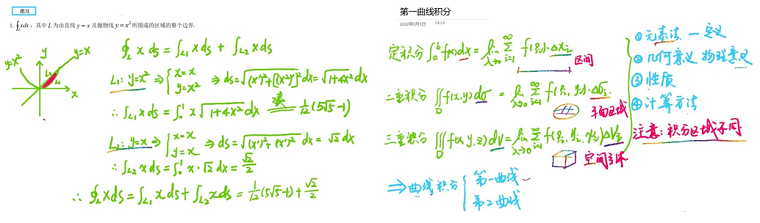 练习
1. ∮_L xds，其中 L 为由直线 y = x 及抛物线 y = x² 所围成的区域的整个边界.
y=x² y y=x
L₂ L₁
x
∮_L x ds = ∫_{L₁} x ds + ∫_{L₂} x ds
L₁: y=x² ⇒ { x=x y=x² ⇒ ds=√((x')²+[(x²)']²) dx=√(1+4x²) dx
∴ ∫_{L₁} x ds = ∫₀¹ x √(1+4x²) dx = 1/12 (5√5-1)
L₂: y=x ⇒ { x=x y=x ⇒ ds=√((x')²+(x')²) dx = √2 dx
∴ ∫_{L₂} x ds = ∫₀¹ x·√2 dx = √2/2
∴ ∮_L x ds = ∫_{L₁} x ds + ∫_{L₂} x ds = 1/12 (5√5-1) + √2/2
第一曲线积分
定积分 ∫_a^b f(x)dx = lim_{λ→0} Σ_{i=1}^∞ f(ξᵢ)·Δxᵢ
区间
二重积分 ∬_D f(x,y)dσ = lim_{λ→0} Σ_{i=1}^∞ f(ξᵢ, ηᵢ)·Δσᵢ
平面区域
三重积分 ∭ f(x,y,z)dV = lim_{λ→0} Σ_{i=1}^∞ f(ξᵢ, ηᵢ, ζᵢ)ΔVᵢ
空间立体
⇒ 曲线积分 { 第一曲线
第二曲线
① 元素法 — 定义
② 几何意义 物理意义
③ 性质
④ 计算方法
注意: 积分区域不同